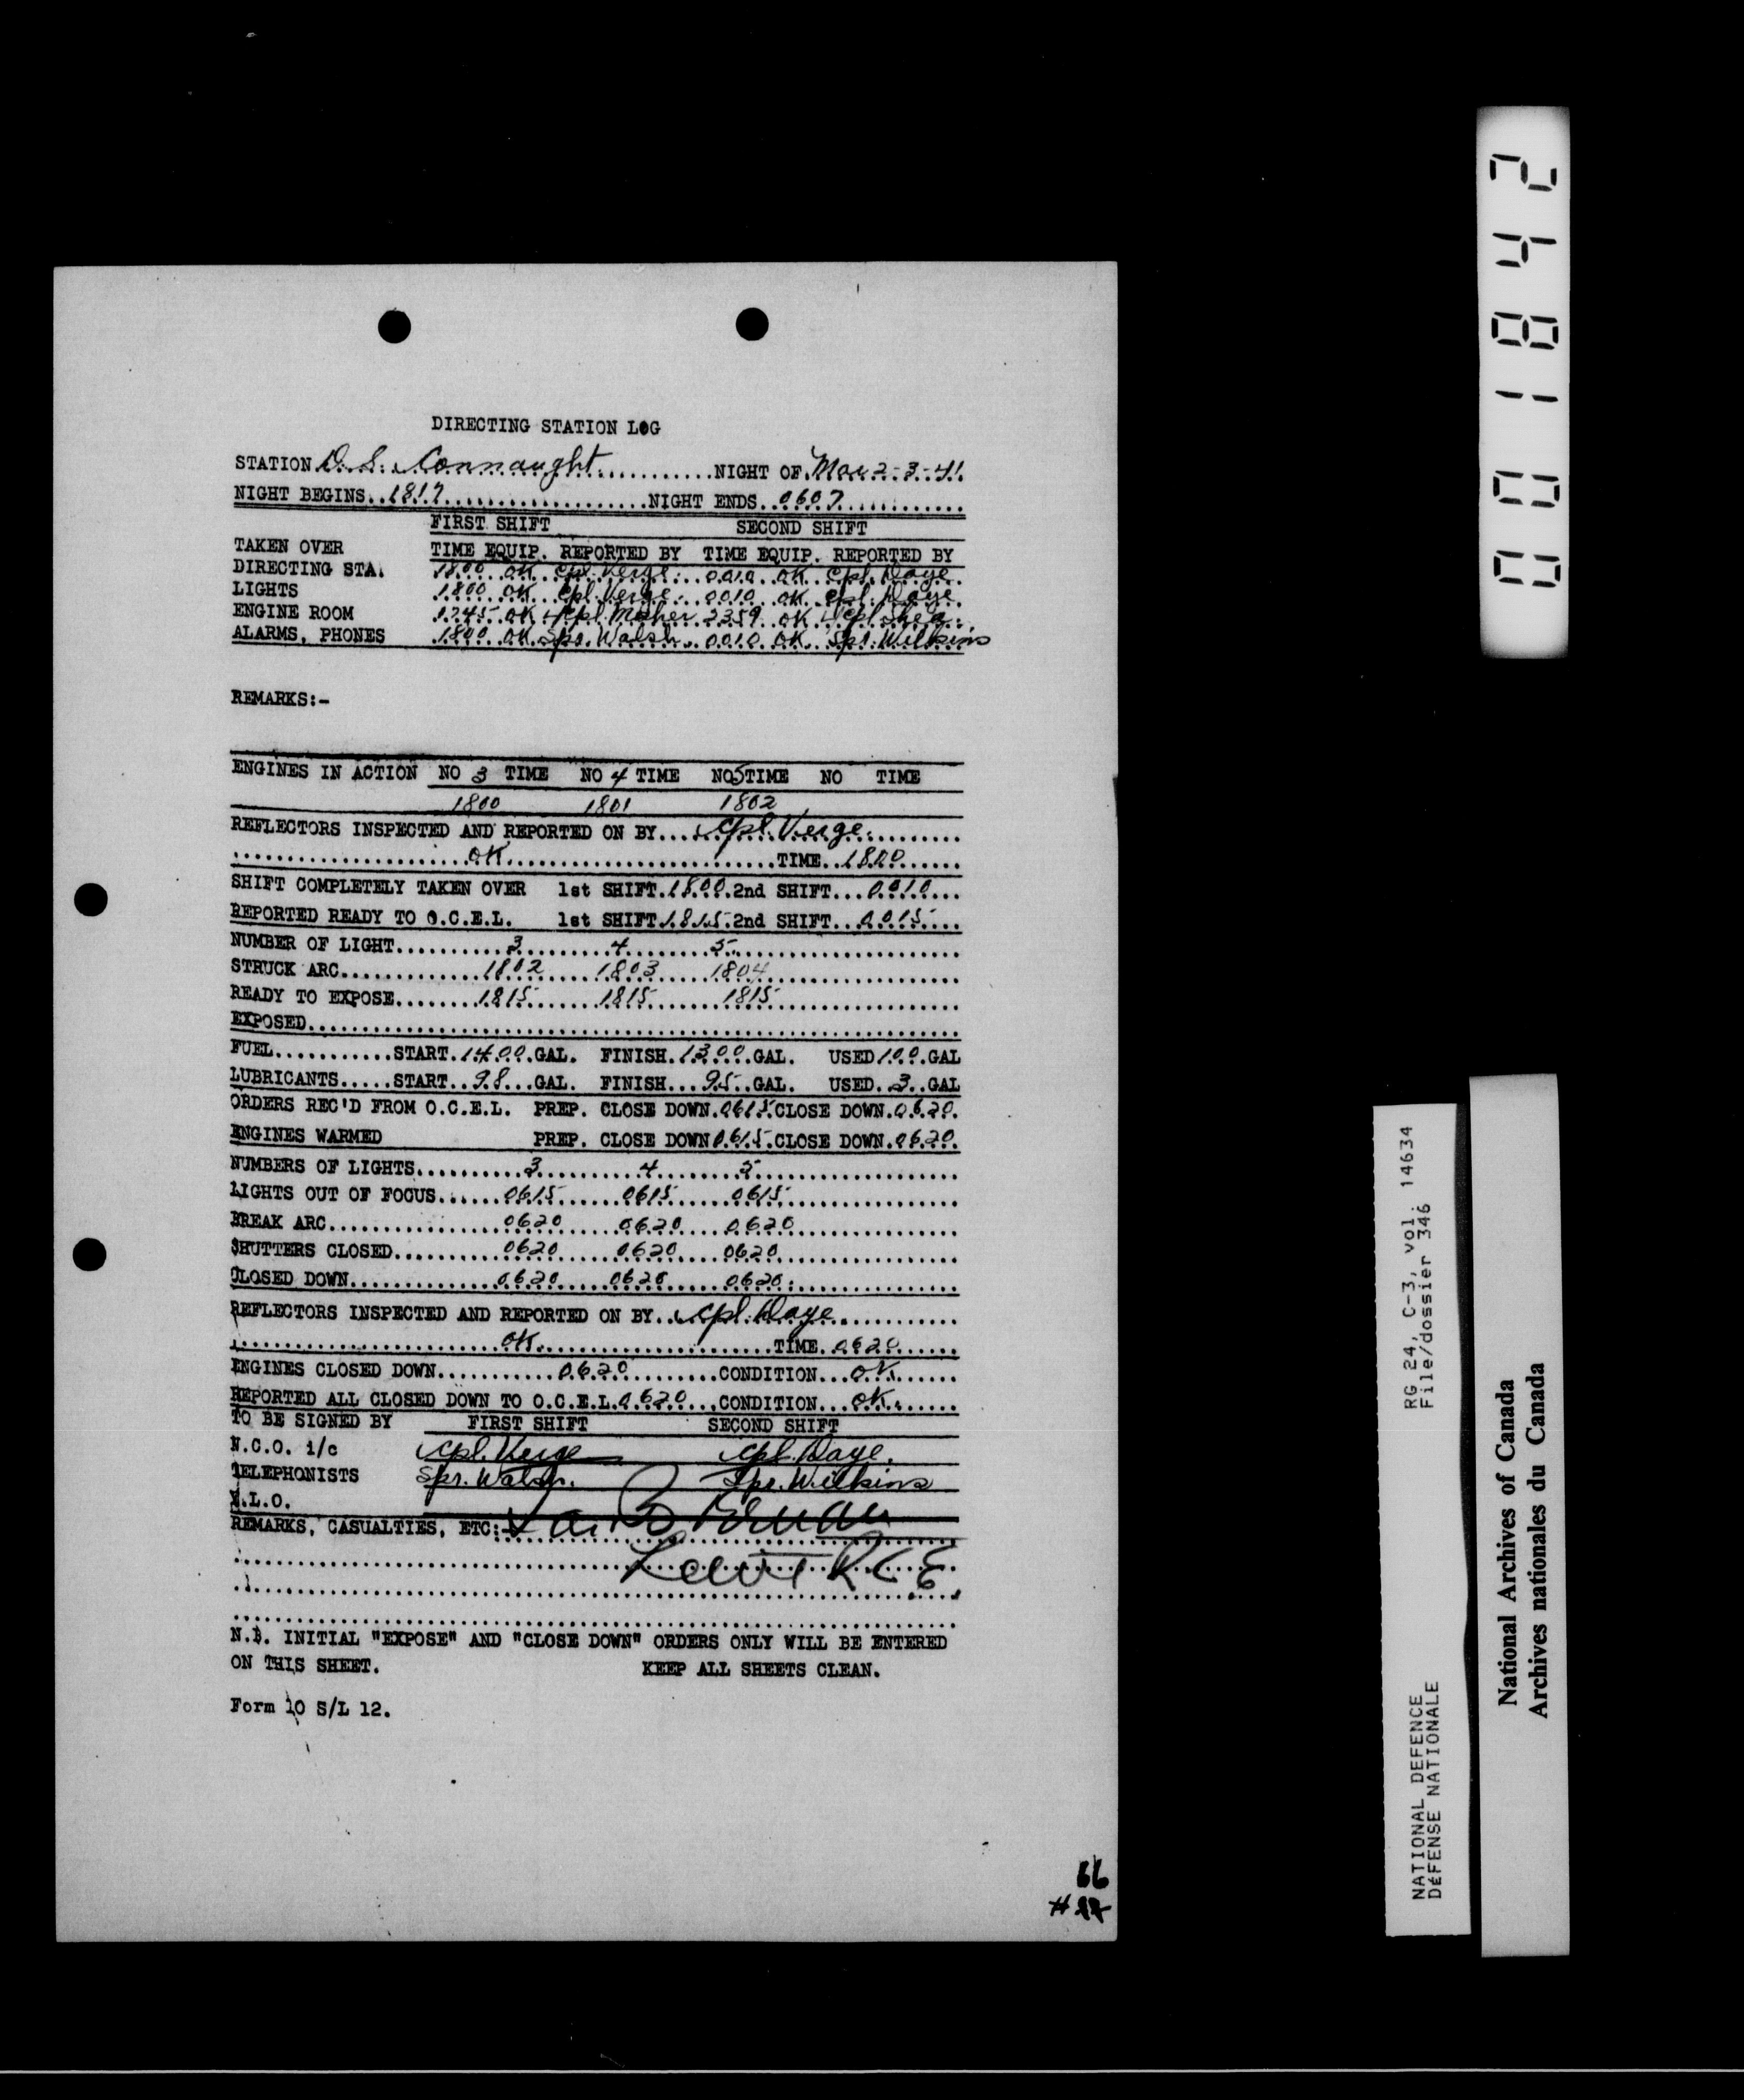 DIRECTING STATION LOG
STATION D. S. Connaught NIGHT OF Mar 2-3-41
NIGHT BEGINS 1817 NIGHT ENDS 0607
FIRST SHIFT SECOND SHIFT
TAKEN OVER TIME EQUIP. REPORTED BY TIME EQUIP. REPORTED BY
DIRECTING STA. 1800 OK Cpl. Verge 0010 OK Cpl. Daye
LIGHTS 1800 OK Cpl. Verge 0010 OK Cpl. Daye
ENGINE ROOM 1745 OK L/Cpl. Maher 2359 OK L/Cpl. Shea
ALARMS, PHONES 1800 OK Spr. Walsh 0010 OK Spr. Wilkins
REMARKS:-
ENGINES IN ACTION NO 3 TIME NO 4 TIME NO 5 TIME NO TIME
1800 1801 1802
REFLECTORS INSPECTED AND REPORTED ON BY Cpl. Verge
OK TIME 1800
SHIFT COMPLETELY TAKEN OVER 1st SHIFT 1800 2nd SHIFT 0010
REPORTED READY TO O.C.E.L. 1st SHIFT 1815 2nd SHIFT 0015
NUMBER OF LIGHT 3 4 5
STRUCK ARC 1802 1803 1804
READY TO EXPOSE 1815 1815 1815
EXPOSED
FUEL START 1400 GAL. FINISH 1300 GAL. USED 100 GAL
LUBRICANTS START 98 GAL. FINISH 95 GAL. USED 3 GAL
ORDERS REC'D FROM O.C.E.L. PREP. CLOSE DOWN 0615 CLOSE DOWN 0620
ENGINES WARMED PREP. CLOSE DOWN 0615 CLOSE DOWN 0620
NUMBERS OF LIGHTS 3 4 5
LIGHTS OUT OF FOCUS 0615 0615 0615
BREAK ARC 0620 0620 0620
SHUTTERS CLOSED 0620 0620 0620
CLOSED DOWN 0620 0620 0620
REFLECTORS INSPECTED AND REPORTED ON BY Cpl. Daye
OK TIME 0620
ENGINES CLOSED DOWN 0620 CONDITION OK
REPORTED ALL CLOSED DOWN TO O.C.E.L. 0620 CONDITION OK
TO BE SIGNED BY FIRST SHIFT SECOND SHIFT
N.C.O. i/c Cpl. Verge Cpl. Daye.
TELEPHONISTS Spr. Walsh. Spr. Wilkins
E.L.O.
REMARKS, CASUALTIES, ETC:-
Lieut R C E
N.B. INITIAL "EXPOSE" AND "CLOSE DOWN" ORDERS ONLY WILL BE ENTERED
ON THIS SHEET. KEEP ALL SHEETS CLEAN.
Form 10 S/L 12.
66
001842
RG 24, C-3, vol. 14634
File/dossier 346
NATIONAL DEFENCE
DÉFENSE NATIONALE
National Archives of Canada
Archives nationales du Canada